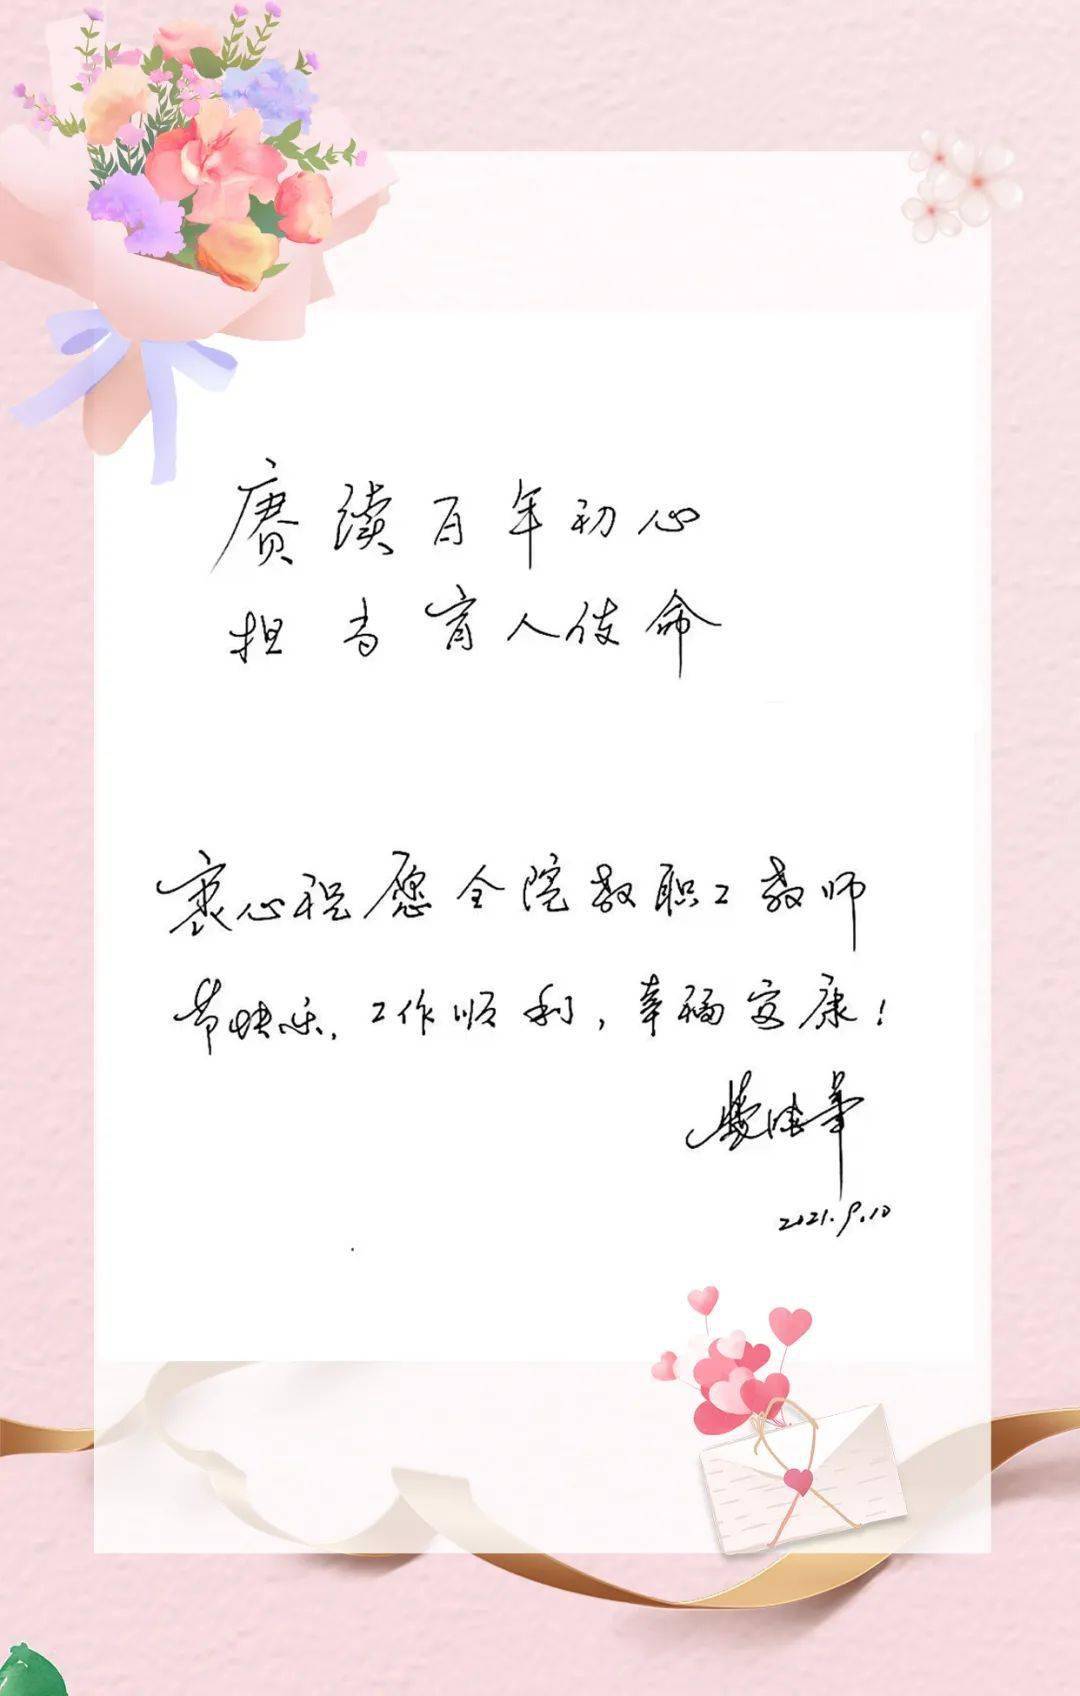 赓续百年初心
担当育人使命
衷心祝愿全院教职工教师
节快乐,工作顺利,幸福安康!
2021.9.10